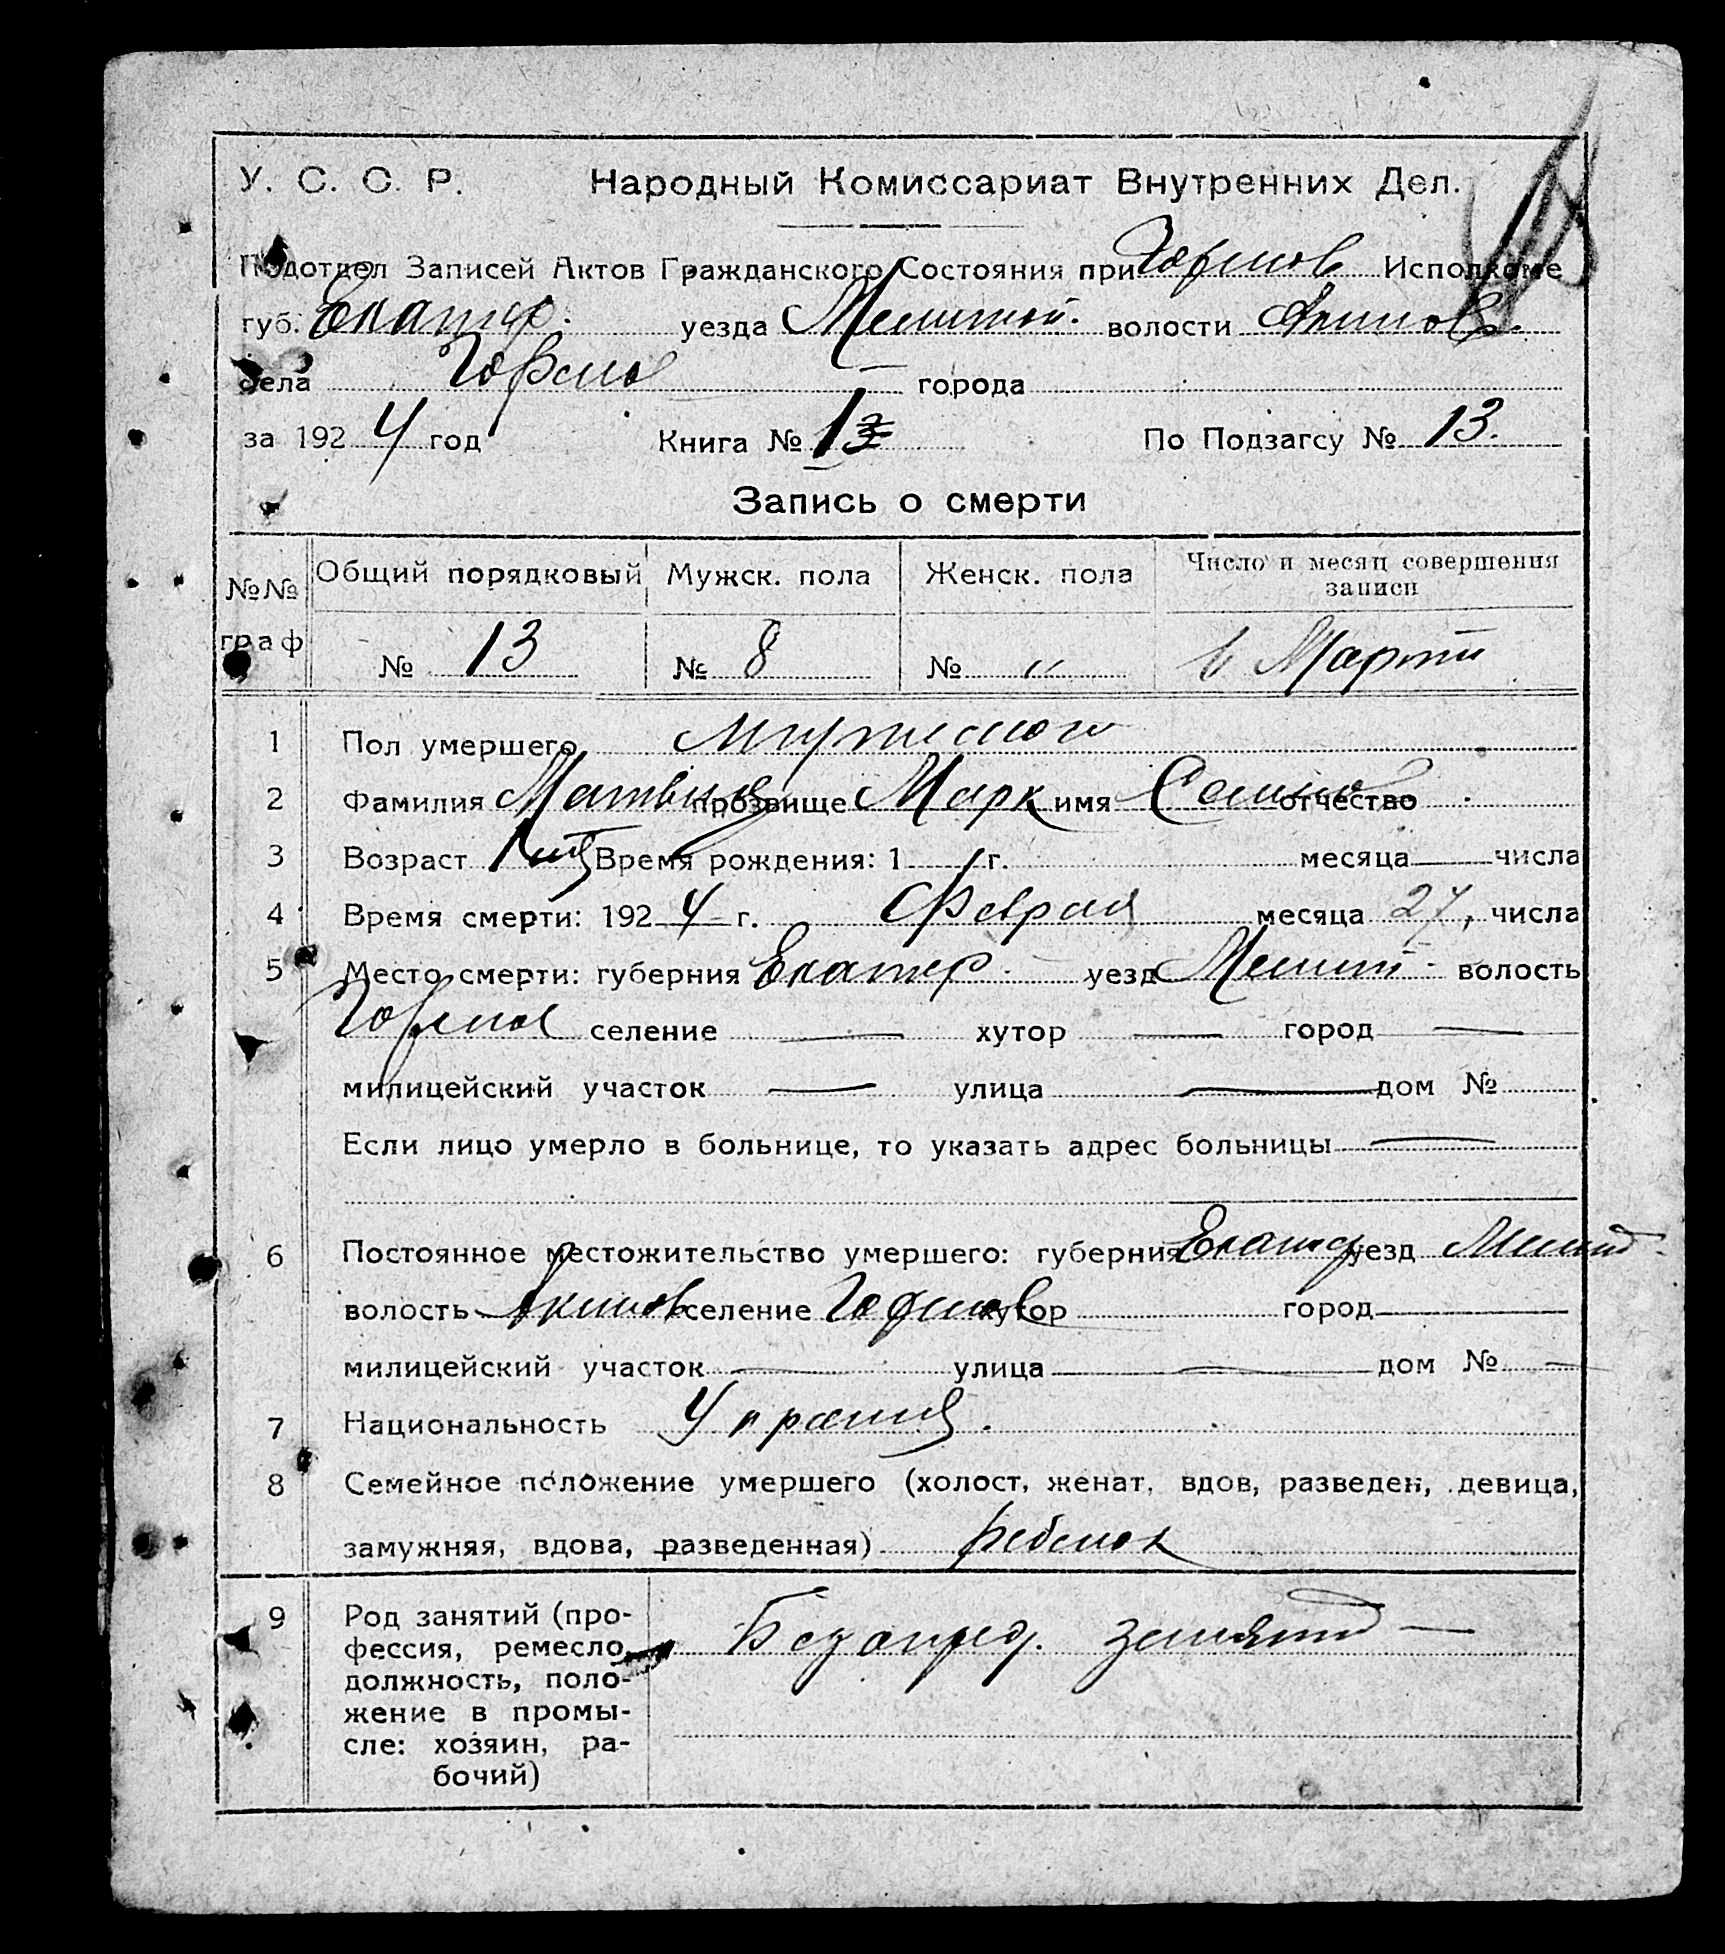 У. С. С. Р. Народный Комиссариат Внутренних Дел.
Подотдел Записей Актов Гражданского Состояния при Исполкоме
губ. Екатер. уезда Мелитой. волости
села города
за 1924 год Книга № 1 По Подзагсу № 13.
Запись о смерти
№№ граф Общий порядковый Мужск. пола Женск. пола Число и месяц совершения записи
№ 13 № 8 № " Марта
1 Пол умершего мужеского
2 Фамилия прозвище Марк имя отчество
3 Возраст Время рождения: 1 г. месяца числа
4 Время смерти: 1924 г. Февраля месяца 27, числа
5 Место смерти: губерния Екатер. уезд Мелит. волость
селение — хутор — город —
милицейский участок — улица — дом №
Если лицо умерло в больнице, то указать адрес больницы —
6 Постоянное местожительство умершего: губерния Екатер уезд Мелит.
волость Акимов селение хутор город —
милицейский участок — улица — дом № —
7 Национальность Украин.
8 Семейное положение умершего (холост, женат, вдов, разведен, девица,
замужняя, вдова, разведенная) ребенок
9 Род занятий (про-
фессия, ремесло,
должность, поло-
жение в промы-
сле: хозяин, ра-
бочий)